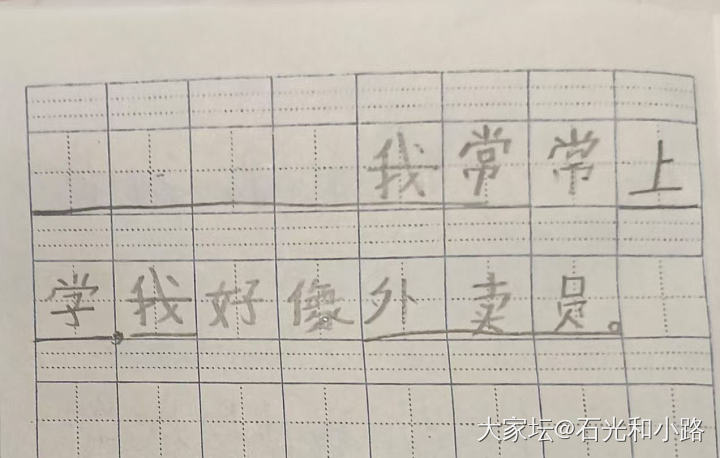 我常常上
学。我好像外卖员。
大家坛@石光和小路